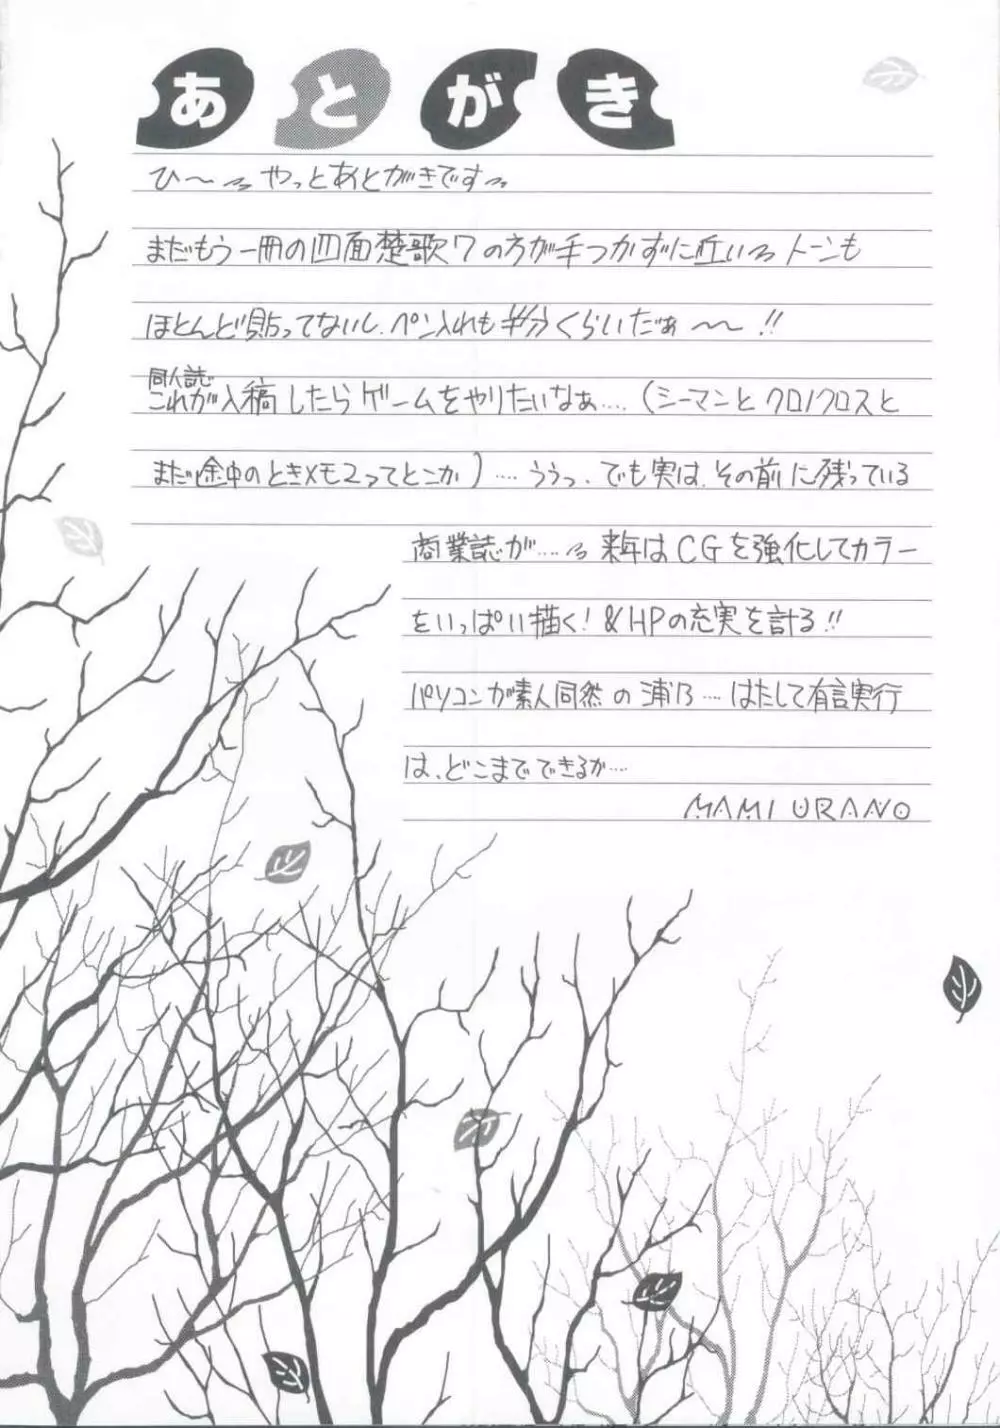 あとがき
ひ〜 やっとあとがきです
まだもう一冊の四面楚歌7の方が手つかずに近い トーンも
ほとんど貼ってないし、ペン入れも半分くらいだぁ〜〜!!
同人誌
これが入稿したらゲームをやりたいなぁ…. (シーマンとクロノクロスと
まだ途中のときメモ2ってとこか) …. ううっ、でも実は、その前に残っている
商業誌が…. 来年はCGを強化してカラー
をいっぱい描く! & HPの充実を計る!!
パソコンが素人同然の浦乃…. はたして有言実行
は、どこまでできるか….
MAMI URANO